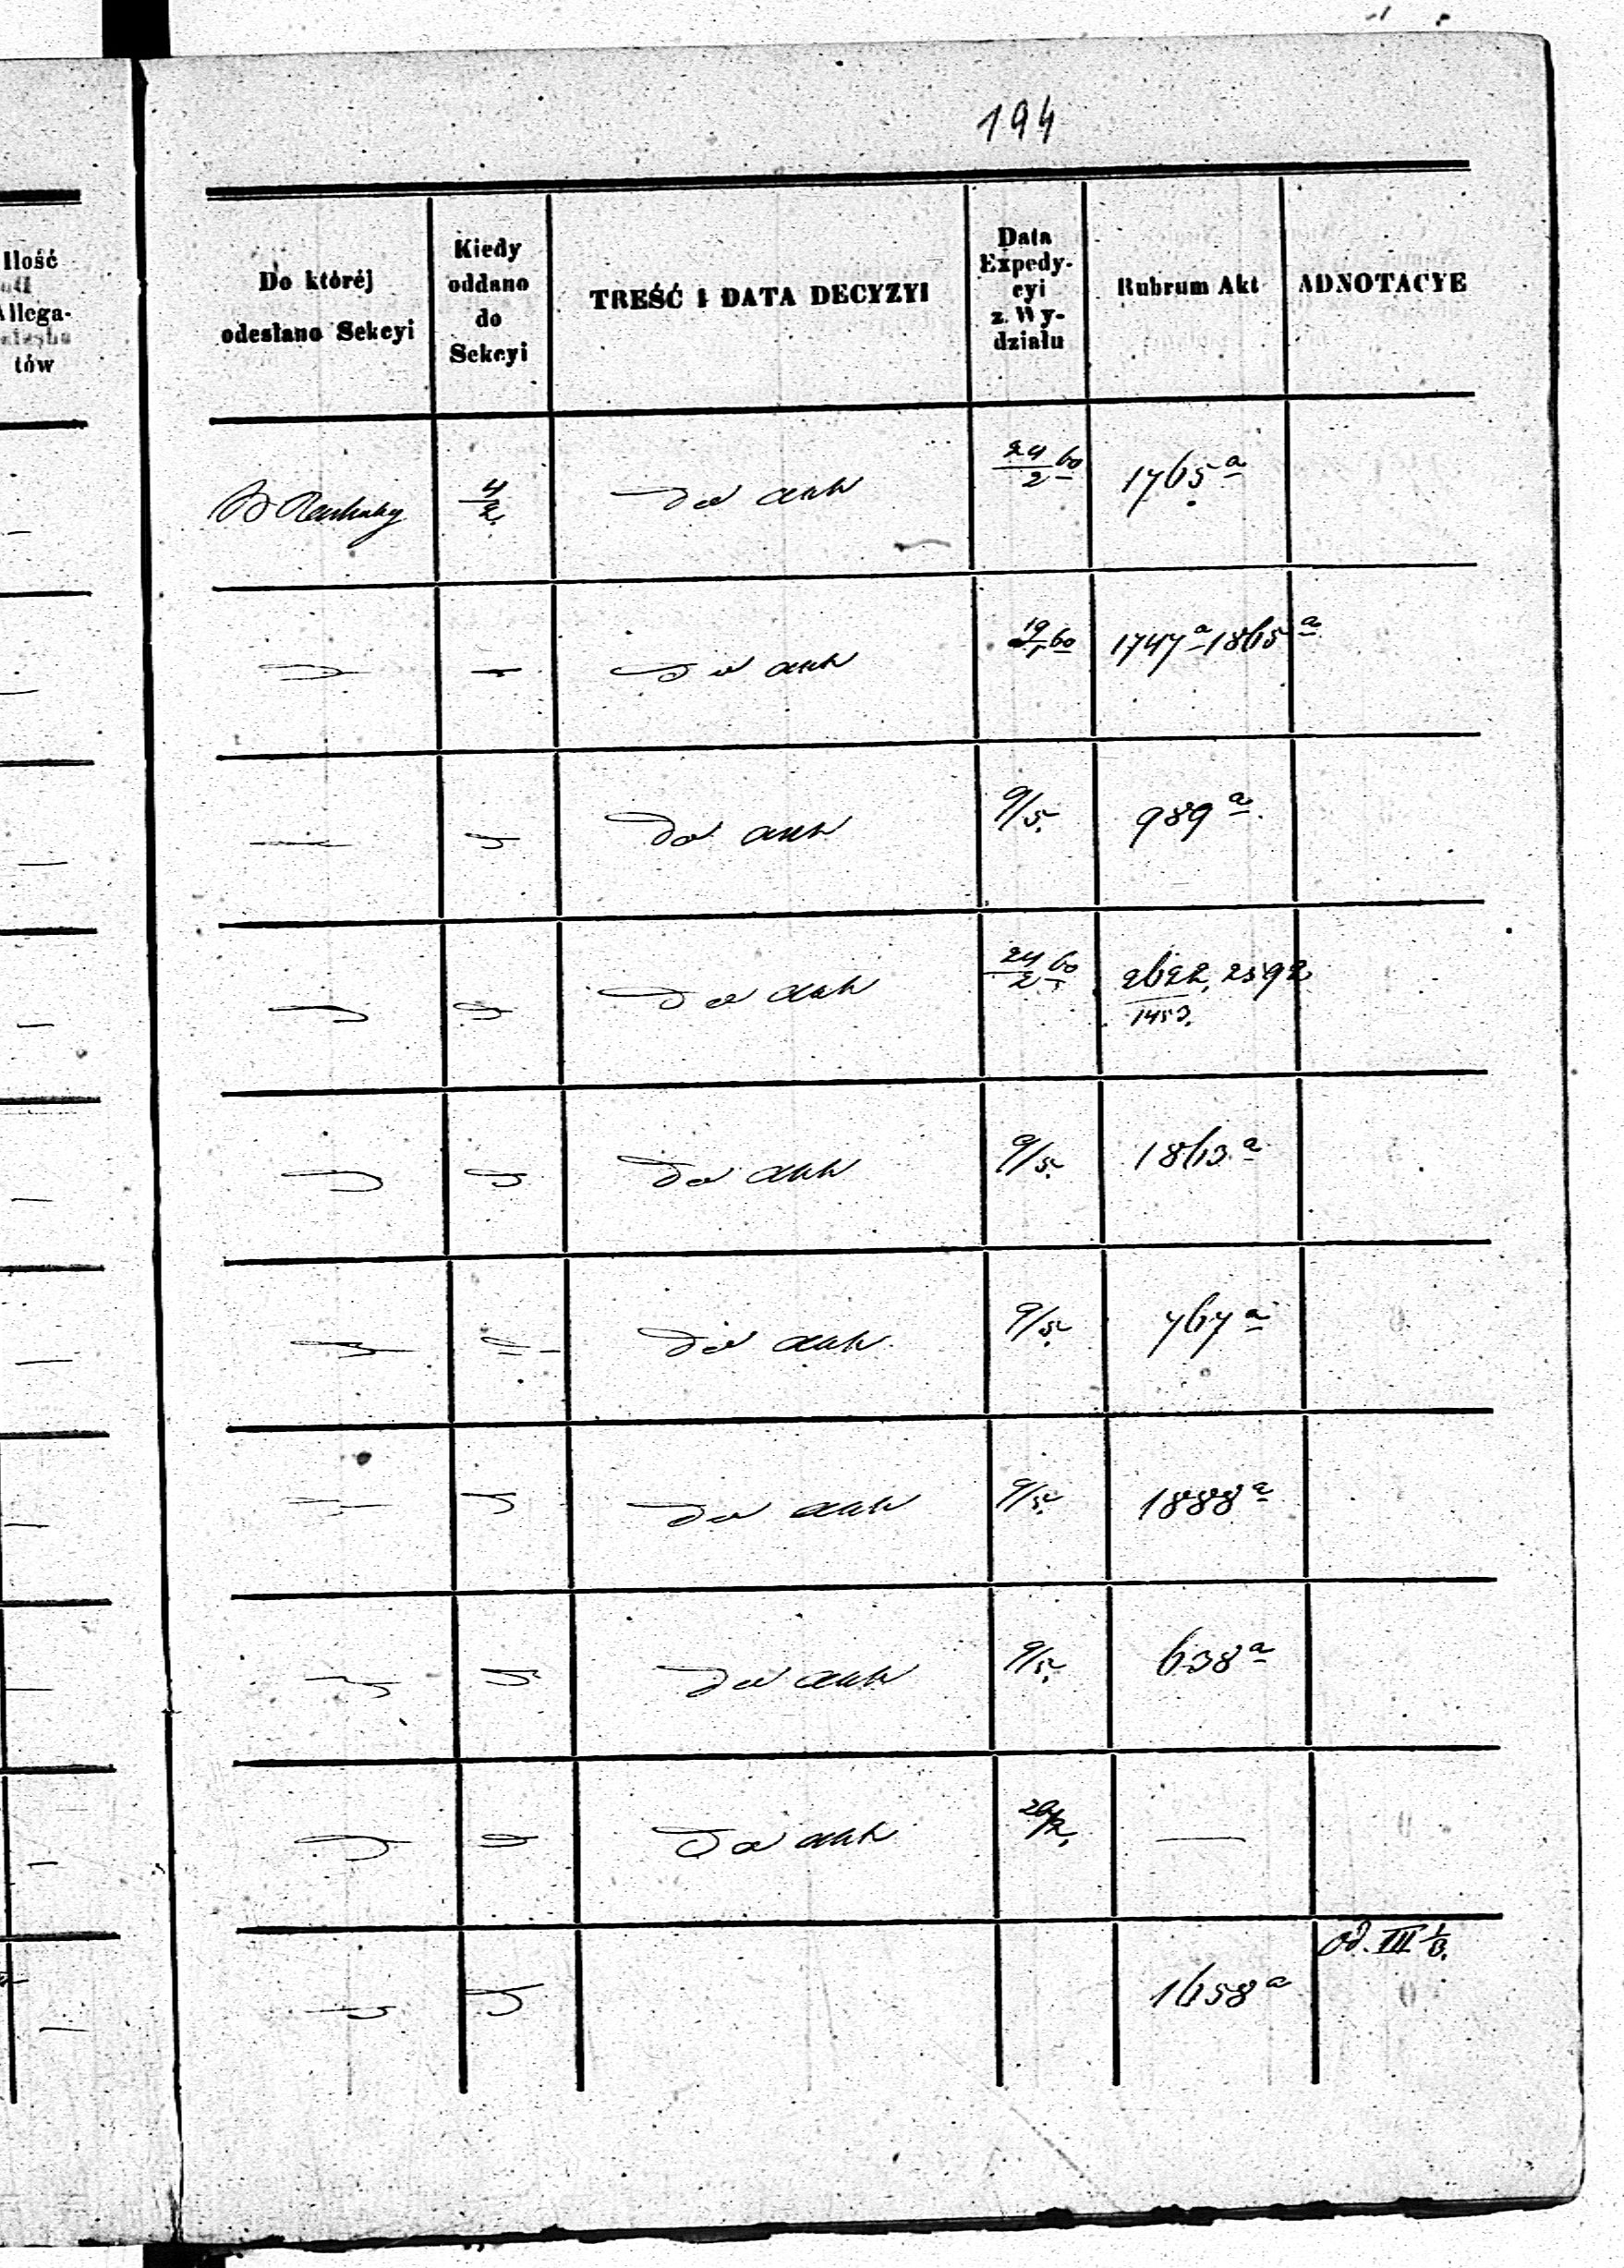 194
Ilość
Allega-
tów
Do któréj
odesłano Sekcyi
Kiedy
oddano
do
Sekcyi
TREŚĆ I DATA DECYZYI
Data
Expedy-
cyi
z Wy-
działu
Rubrum Akt
ADNOTACYE
4/2 do akt 24/2 60 1765 a
do akt 19/1 60 1747 a 1865 a
do akt 9/5. 989 a
do akt 24/2 60 2622, 2592
1453.
do akt 9/5. 1863 a
do akt 9/5. 767 a
do akt 9/5. 1888 a
do akt 9/5. 638 a
do akt 29/2. —
od. III 1/3.
1658 a